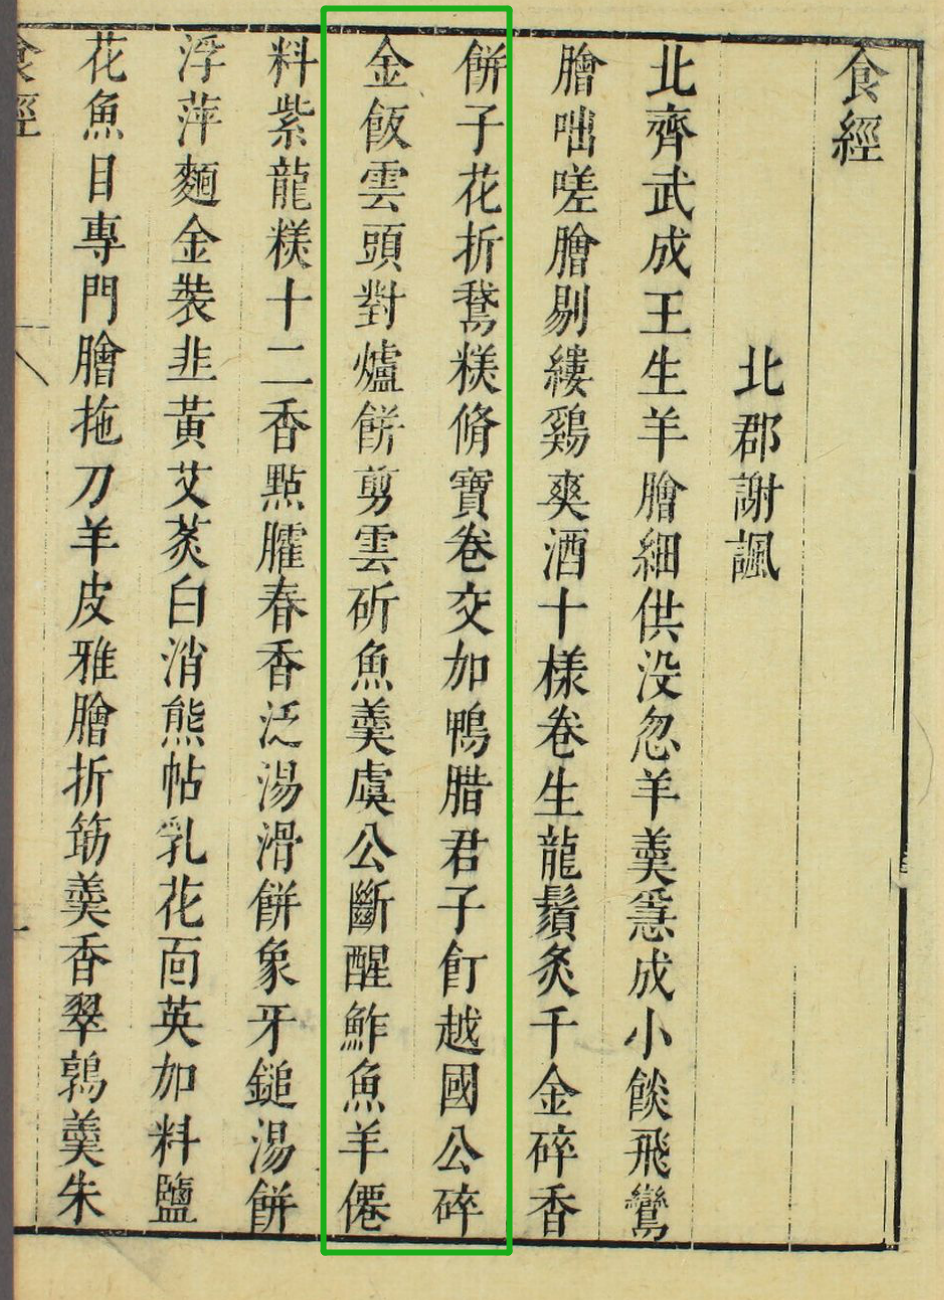 食經
北郡謝諷
北齊武成王生羊膾細供没忽羊羹急成小餤飛鸞
膾咄嗟膾剔縷鷄爽酒十樣卷生龍鬚炙千金碎香
餅子花折鵞糕脩寶卷交加鴨腊君子飣越國公碎
金飯雲頭對爐餅剪雲斫魚羹虞公斷醒鮓魚羊僊
料紫龍糕十二香點臛春香泛湯滑餅象牙鎚湯餅
浮萍麵金裝韭黃艾炙白消熊帖乳花面英加料鹽
花魚目專門膾拖刀羊皮雅膾折筯羹香翠鶉羹朱
食經
一